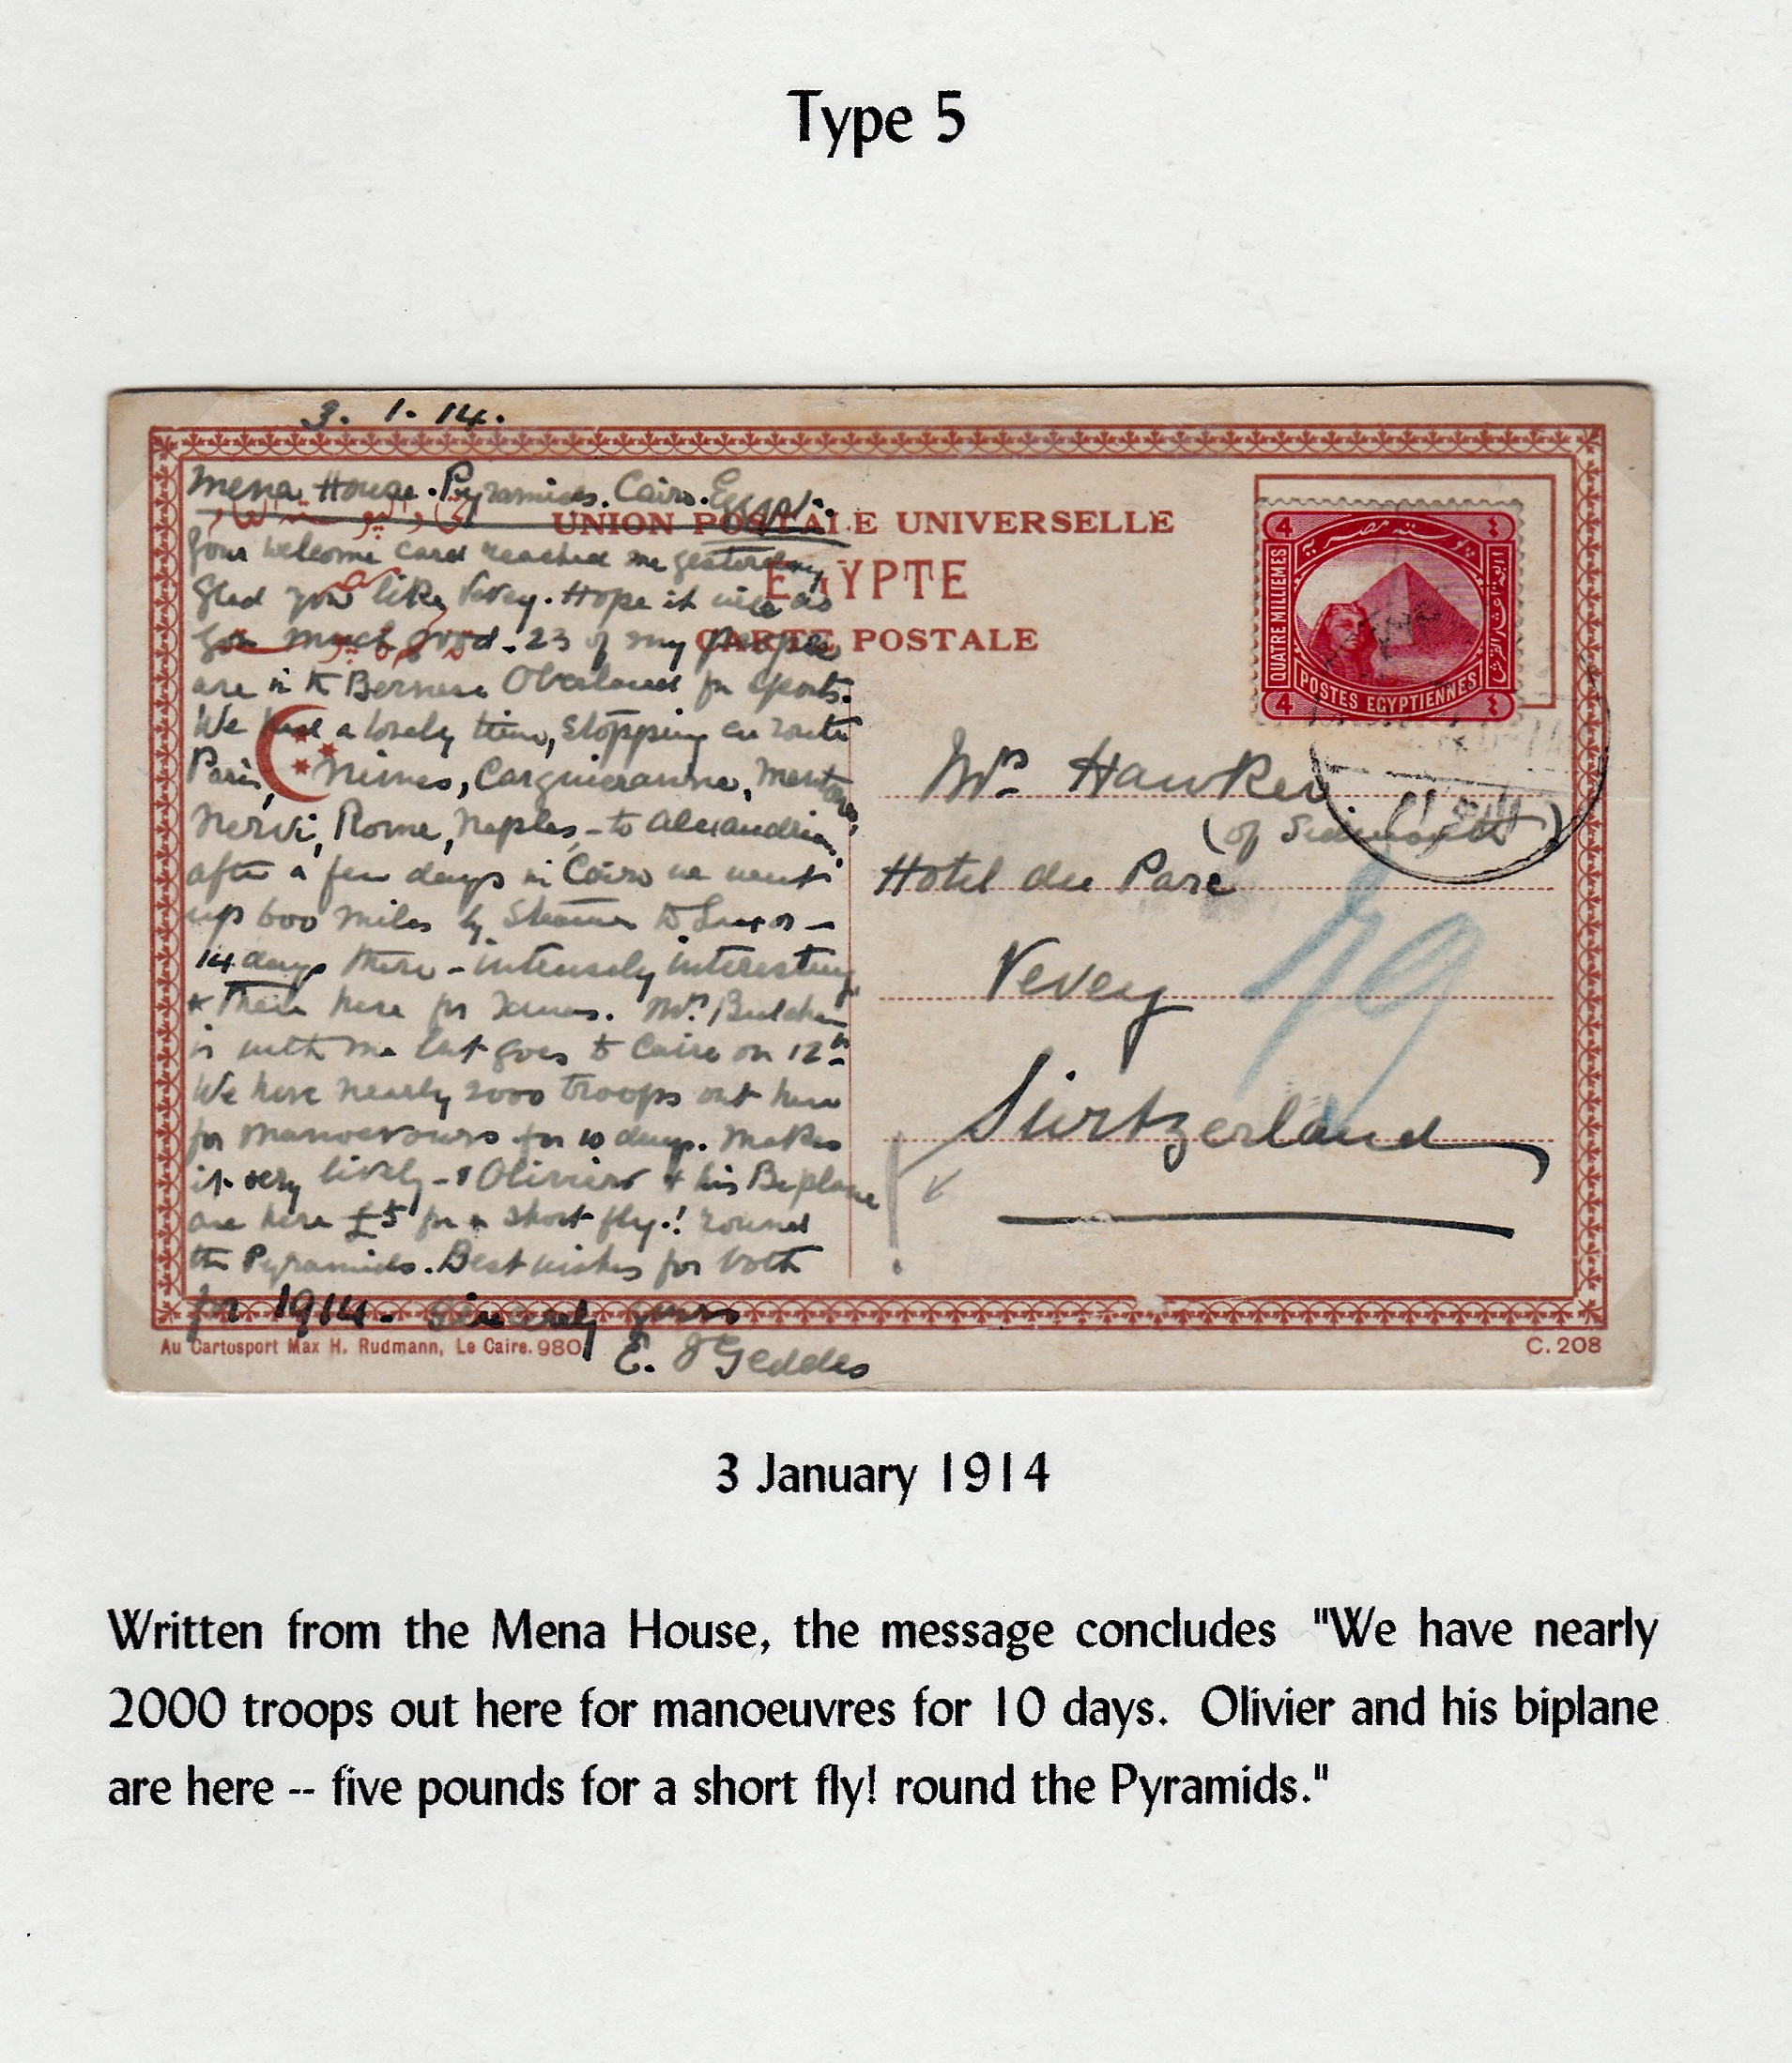 Type 5
3. 1. 14.
Mena House. Pyramids. Cairo. Egypt.
UNION POSTALE UNIVERSELLE
EGYPTE
CARTE POSTALE
Your welcome card reached me yesterday
Glad you like Vevey. Hope it will do
you much good. 23 of my people
are in the Bernese Oberland for sports.
We had a lovely time, stopping en route
Paris, Nimes, Carquieranne, Mentone,
Nervi, Rome, Naples, - to Alexandria.
after a few days in Cairo we went
up 600 miles by Steamer to Luxor -
14 days there - intensely interesting
& then here for Xmas. Mrs
is with me but goes to Cairo on 12th
We have nearly 2000 troops out here
for manoevours for 10 days. Makes
it very lively - & Olivier & his Biplane
are here £5 for a short fly.! round
the Pyramids. Best wishes for both
for 1914. Sincerely yours
E. J Geddes
4 بوستة مصرية ٤
QUATRE MILLIEMES
POSTES EGYPTIENNES
4 ٤
Mrs Hawker
(of Sidmouth)
Hotel du Parc
Vevey
Switzerland
Au Cartosport Max H. Rudmann, Le Caire. 980
C. 208
3 January 1914
Written from the Mena House, the message concludes "We have nearly
2000 troops out here for manoeuvres for 10 days. Olivier and his biplane
are here -- five pounds for a short fly! round the Pyramids."